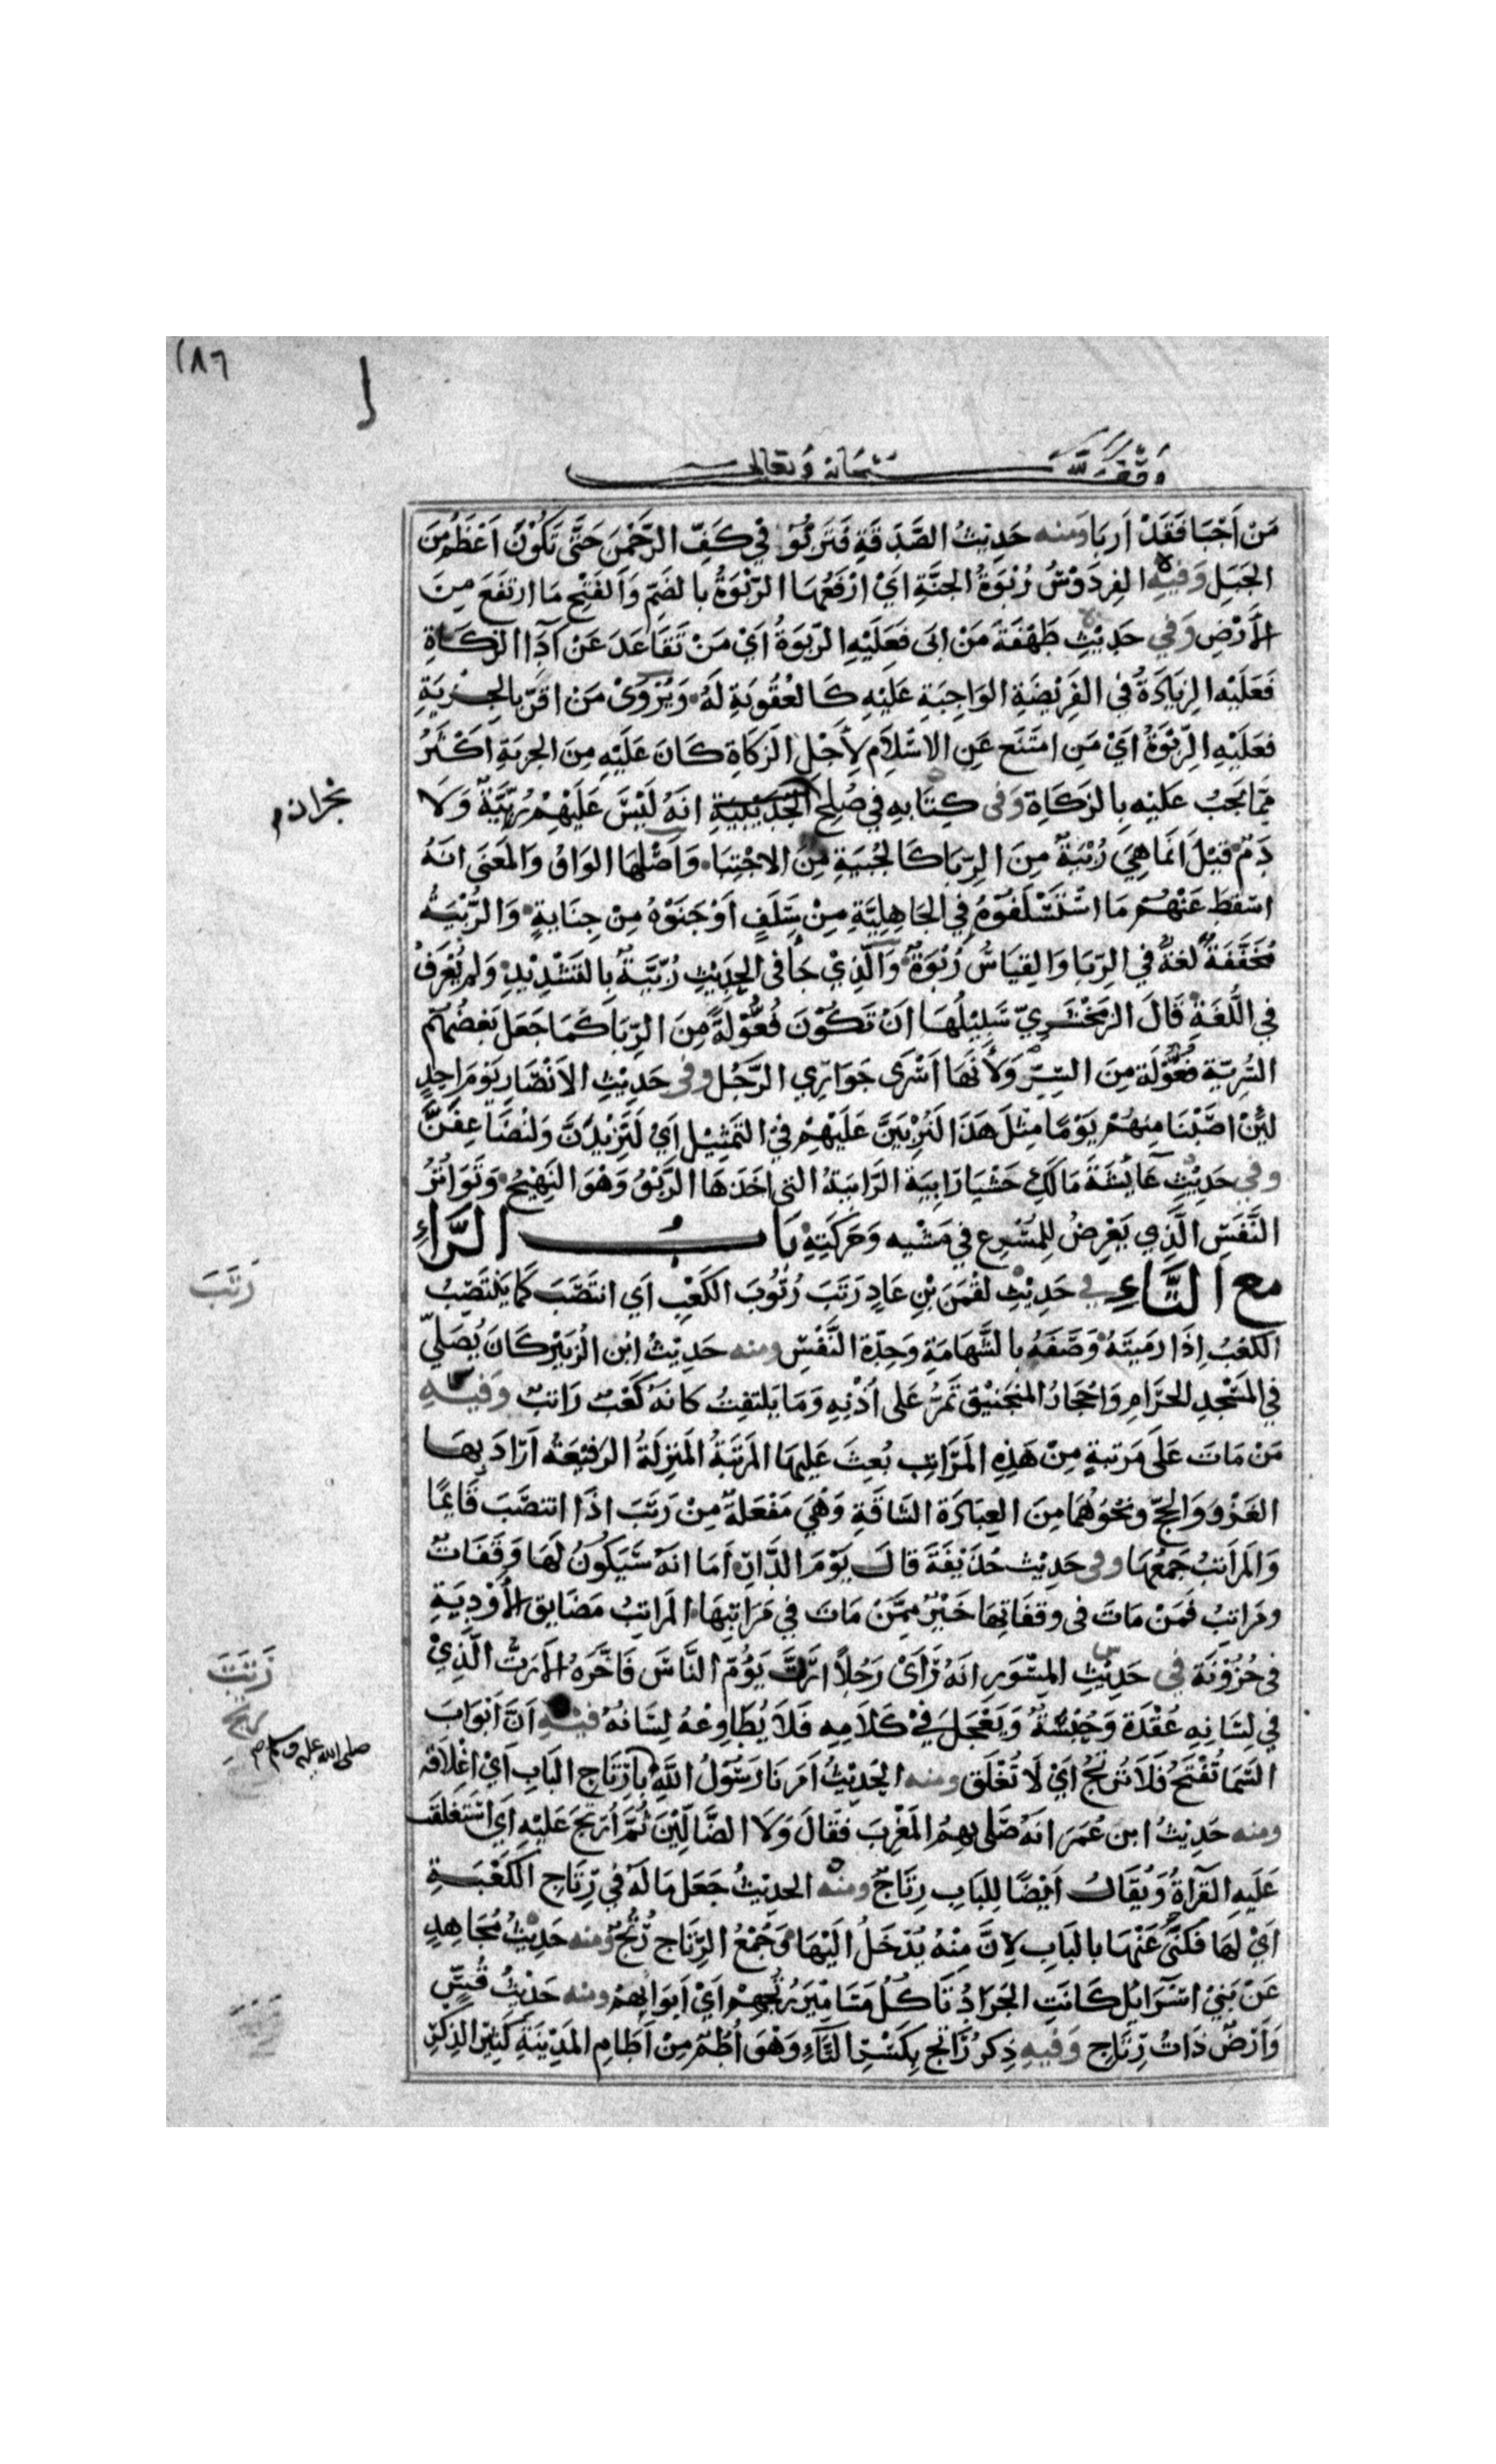 ١٨٦
وقف لله سبحانه وتعالى
مَنْ أَجْبَا فَقَدْ أَربَا ومنه حَدِيثُ الصَّدَقَةِ فَتَرْبُوا فِي كَفِّ الرَّحْمٰنِ حَتَّى تَكُوْنَ أَعْظَمُ مِنَ
الجَبَلِ وَفيهِ الفِردَوْسُ رُبْوَةُ الجنَّةِ اَيْ ارْفَعُهَا الرّبْوَةُ بالضَمّ وَالفَتْحِ مَا ارتفَعَ مِنَ
الأَرْضِ وَفي حَدِيْثِ طَهْفَةَ مَنْ ابَى فَعَلَيْهِ الرّبَوَةُ أيْ مَنْ تَقَاعَدَ عَنْ آدَاالزكَاةِ
فَعَلَيْهِ الزِيَادَةُ في الفَرِيْضَةِ الوَاجِبَةِ عَلَيْهِ كَالعُقُوبَةِ لَهُ وَيُرْوَىْ مَنْ اقَرّ بالجِزيَةِ
فعَلَيْهِ الرِّبْوَةُ اَيْ مَنِ امتَنَع عَنِ الاسْلَامِ لِأَجْلِ الزَكَاةِ كَانَ عَلَيْهِ مِنَ الجزيَةِ اَكْثَرُ
مِمَّا يَجبُ عَليْهِ بِالزَكَاةِ وَفى كِتَابهِ في صُلحِ الحُدَيْبِيَةِ انهُ لَيْسَ عَلَيْهِمْ رُبِّيَّةٌ وَلَا
نجران م
دَمٌ قيْلَ اَنما هِيَ رُبْيَةٌ مِنَ الرِبَا كَالحُبيَةِ مِنَ الاحْتِبَا وَأَصْلهَا الوَاوُ وَالمَعْنَى انهُ
اسْقَطَ عَنْهُمْ مَا اسْتَسْلَفُوْهُ فِي الجَاهِلِيَّةِ مِنْ سَلَفٍ أَوْ جَنَوْهُ مِنْ جِنَايةٍ وَالرُّبْيَهُ
مُخَفَّفَةً لغةٌ في الرِّبَا وَالقِيَاسُ رُبْوَةٌ وَالَّذِيْ جَا فى الحَدِيْثِ رُبِّيَّةٌ بالتَشْدِيْدِ وَلم يُعْرَفْ
في اللُّغَةِ قَالَ الزمَخْشَرِيّ سَبِيْلُهَا اَنْ تَكُوْنَ فُعُّوْلةً مِنَ الرِّبَا كَمَا جَعَل بَعْضُهُمْ
السُّرِيّة فعُّوْلَة مِنَ السِّرِّ وَلأنَهَا اَسْرَى جَوَارِي الرَّجُل وفى حَدِيْثِ الاَنْصَارِ يَوْمَ اُحدٍ
لئِنْ اصَبْنَا مِنهُمْ يَوْمًا مِثْلَ هَذَا لَنُرْبَيَنَّ عَلَيْهِمْ فِيْ التَمْثِيْلِ اَيْ لَنَزِيْدَنَّ وَلنُضَاعِفَنَّ
وفي حَدِيْثِ عَايْشَةَ مَالَكِ حَشْيَا رَابِيَة الرَّابيَةُ التى اخَذَهَا الرَّبْوُ وَهُوَ النَهِيْجُ وَتَوَاتُرُ
النَّفَسِ الَّذِي يَعْرِضُ لِلمُسْرِعِ في مَشْيه وَحَرَكَتِهِ بَابُ الرَّاءِ
مع التَّاءِ في حَدِيْثِ لقْمَن بْنِ عَادٍ رَتَبَ رُتُوبَ الكَعْبِ اَي انتَصَبَ كَمَا يَنْتَصِبُ
رَتَبَ
الكَعْبُ اِذَا رمَيتَهُ وَصَفَهُ بالشَّهَامَةِ وَحِدّة النَّفْسِ ومنه حَدِيْثُ ابْن الزبَيْرِ كَانَ يُصَلِيّ
في المَسْجِدِ الحرَامِ وَاحْجَارُ المنجَنيْق تَمرُّ عَلى أُذُنِهِ وَمَا يَلتفِتُ كانهُ كَعْبٌ رَاتبٌ وَفيهِ
مَنْ مَاتَ عَلَى مَرتبةٍ مِنْ هَذِهِ المَرَاتِبِ بُعِثَ عَليهَا المَرتَبَةُ المَنزِلَةُ الرَفيْعَةُ اَرَادَ بهَا
الغَزْوَ وَالحَجّ ونحْوَهُمَا مِنَ العِبَادَة الشاقَةِ وَهْيَ مَفْعَلةٌ مِنْ رَتَبَ اذَا انتصَبَ قَايمًا
وَالمَرَاتبُ جَمْعُهَا وفى حَدِيْثِ حُذَيْفَةَ قَالَ يَوْمَ الدَّارِ اَمَا انهُ سَيَكُونُ لهَا وَقفَاتٌ
ومَرَاتبُ فَمَنْ مَاتَ فى وقفَاتِهَا خَيْرٌ مِمَّنْ مَاتَ فِي مَرَاتِبِهَا المَراتِبُ مَضَايِق الأَوْدِيَةِ
فى حُزُوْنَة في حَدِيْثِ المِسْوَرِ انهُ رَاَىْ رَجُلاً ارَتَّ يَوُمّ النَّاسَ فَاخَّرَهُ الأَرَتُّ الَّذِيْ
رَتَتَ
في لِسَانِهِ عُقْدَة وَحُبْسَةٌ وَيَعْجَل فِيْ كَلَامِهِ فَلَا يُطَاوِعُهُ لِسَانُهُ فيْهِ اَنَّ اَبْوَابَ
رتج
السَّمَا تُفْتَحُ فَلَا تُرتجُ اَيْ لَا تُغْلَق ومنه الحَدِيْثُ اَمَرَنَا رَسُوْلُ اللَّهِ بِارْتَاجِ البَابِ اَيْ اغْلَاقه
صلى الله عليه وسلم
ومنه حَدِيْثُ ابن عُمَرَ انهُ صَلى بِهِمُ المَغْرِبَ فقَالَ وَلَا الضَّالِّيْنَ ثُمَّ اُرْتِجَ عَلَيْهِ اَي اسْتَغلَقَ
عَلَيهِ القرَاةُ وَيُقَالُ اَيْضًا لِلبَابِ رِتَاجٌ ومنْه الحدِيْثُ جَعَل مَالَهُ فِي رِتَاجِ الكَعْبَةِ
اَيْ لهَا فكَنَّى عَنْهَا بالبَابِ لِانَّ مِنْهُ يُدْخَلُ اليْهَا وَجَمْعُ الرِّتَاجِ رُتُجٌ ومنه حَدِيْثُ مُجَاهِدٍ
عَنْ بَنِيْ اسْرَايْل كَانَتِ الجَرَادُ تَأكُلُ مَسَامِيْرَ رُتجِهِمْ اَيْ اَبوَابهِمْ ومنه حَدِيْثُ قُسٍّ
وَاَرْضٌ ذَاتُ رِتَاجٍ وَفيهِ ذِكرُ رَاتجٍ بِكَسْرِ التَّاءِ وَهْوَ اُطُمٌ مِنْ آطَامِ المَدِيْنَةِ كَثِيْرُ الذِكْرِ